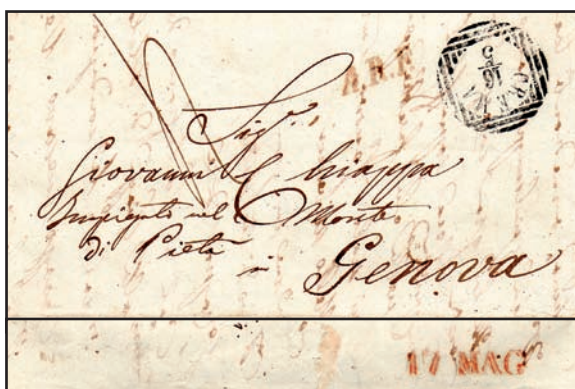 A.P.F.
CREMA
16
5
Sigr.
Giovanni Chiappa
Impiegato nel Monte
di Pietà
in
Genova
17 MAG